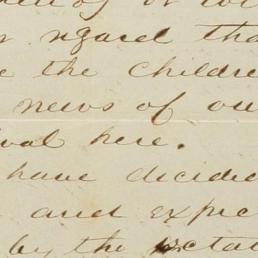 regard tha
the childre
news of ou
val here.
have decide
and expec
by the